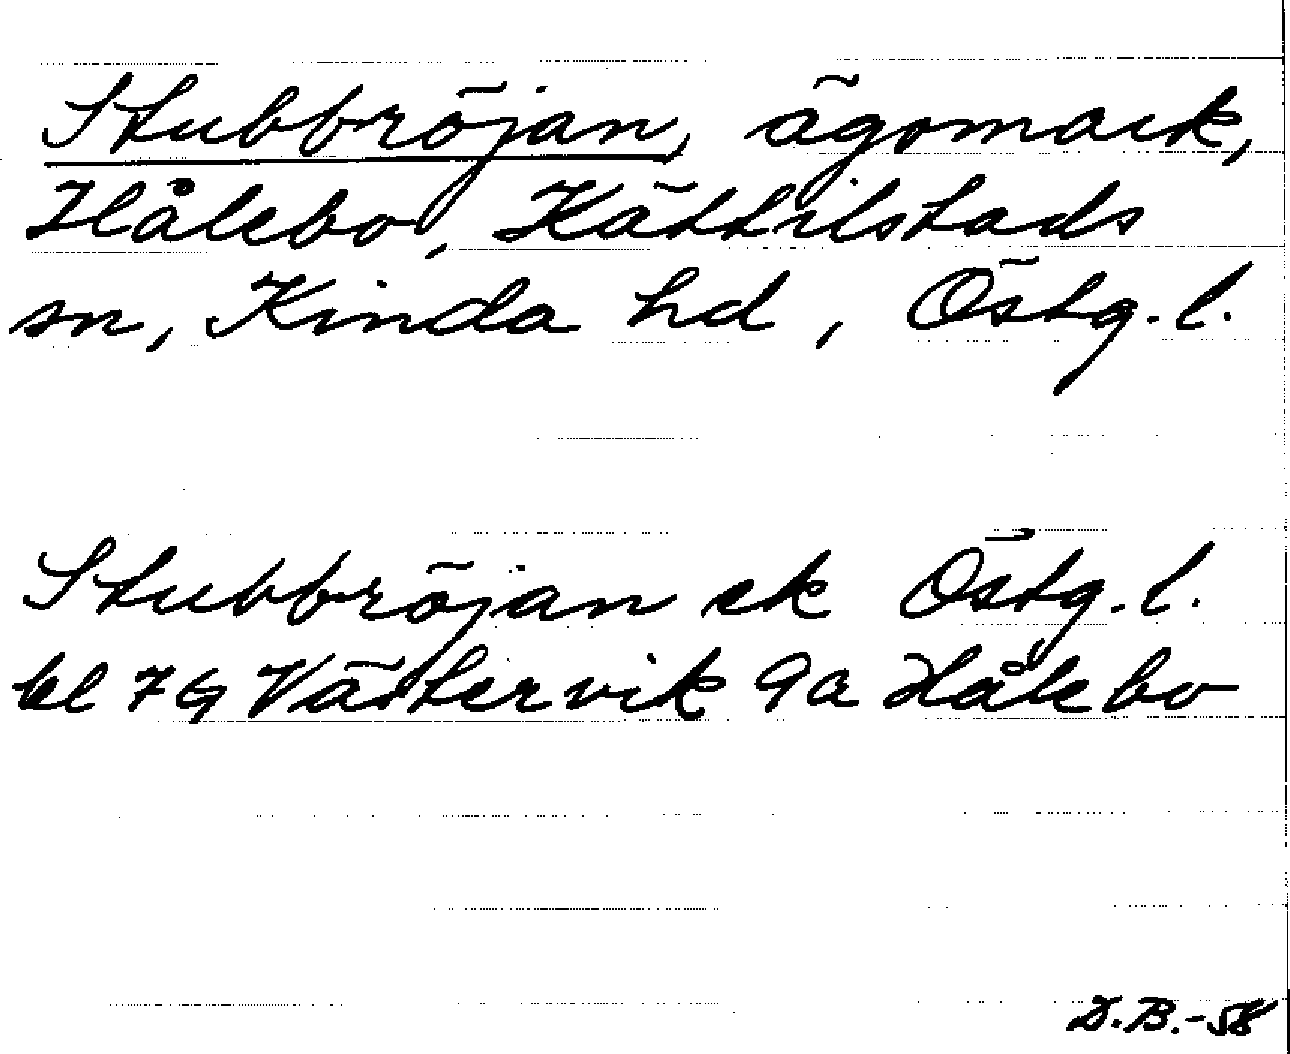 Stubbröjan, ägomark,
Hålebo, Kättilstads
sn, Kinda hd, Östg. l.
Stubbröjan ek Östg. l.
bl 7G Västervik 9a Hålebo
D.B.-58